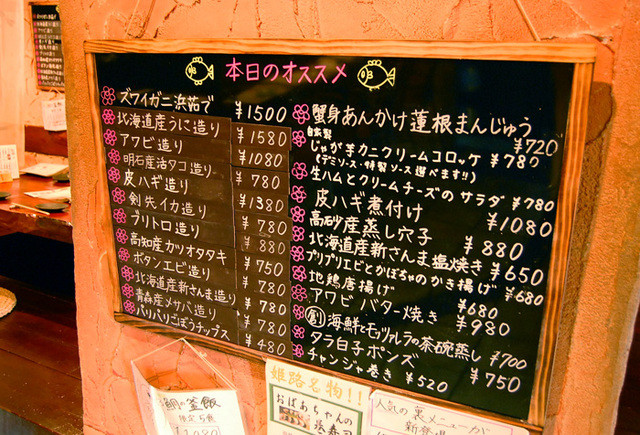 本日のオススメ
ズワイガニ浜茹で ¥1500
北海道産うに造り ¥1580
アワビ造り ¥1080
明石産活タコ造り ¥780
皮ハギ造り ¥1380
剣先イカ造り ¥780
ブリトロ造り ¥880
高知産カツオタタキ ¥750
ボタンエビ造り ¥780
北海道産新さんま造り ¥780
青森産メサバ造り ¥780
パリパリごぼうチップス ¥480
蟹身あんかけ蓮根まんじゅう ¥720
自家製
じゃが芋カニクリームコロッケ ¥780
(デミソース・特製ソース選べます!!)
生ハムとクリームチーズのサラダ ¥780
皮ハギ煮付け ¥1080
高砂産蒸し穴子 ¥880
北海道産新さんま塩焼き ¥650
プリプリエビとかぼちゃのかき揚げ ¥680
地鶏唐揚げ ¥680
アワビバター焼き ¥980
創 海鮮とモッツァレラの茶碗蒸し ¥700
タラ白子ポンズ ¥750
チャンジャ巻き ¥520
鯛の釜飯
限定5食
姫路名物!!
おばあちゃんの
人気の裏メニューが
新登場